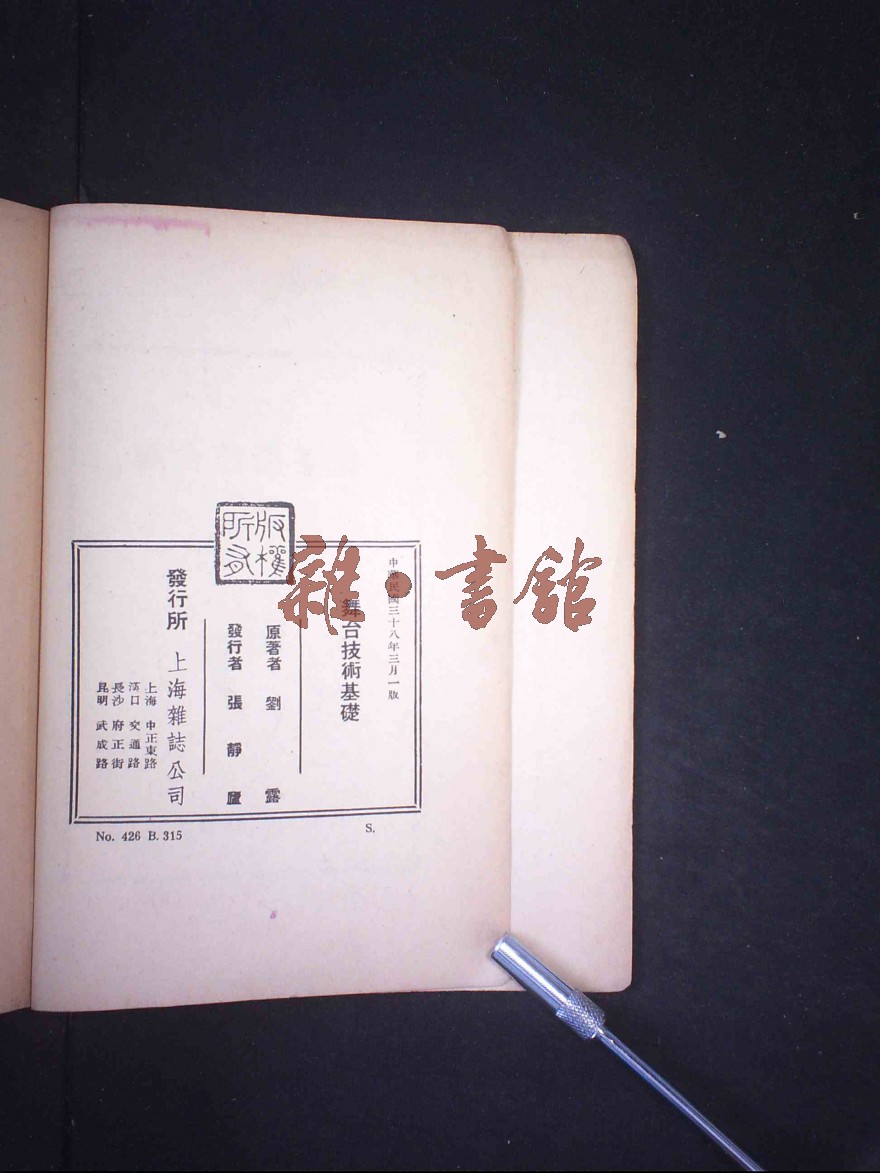 中華民國三十八年三月一版
舞台技術基礎
原著者 劉露
發行者 張靜廬
版權所有
發行所 上海雜誌公司
上海 中正東路
漢口 交通路
長沙 府正街
昆明 武成路
No. 426 B. 315
S.
雜·書館